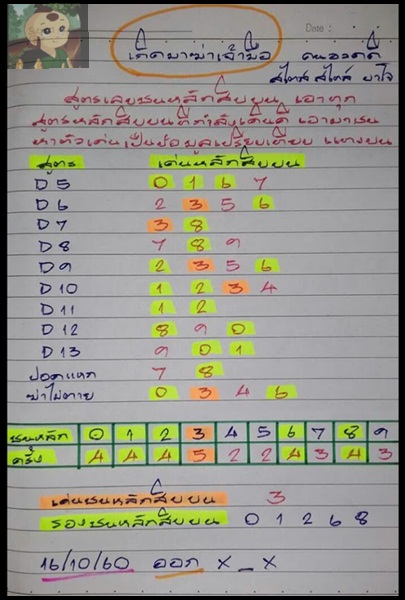 Date :
เด็ดมาฆ่าเจ้ามือ คนองคดี
สไตล์ สไตล์ ยาใจ
สูตรเลขชนหลักสิบบน เอาทุก
สูตรหลักสิบบนที่กำลังเดินดี เอามาชน
หาตัวเด่นเป็นข้อมูลเปรียบเทียบ แทงบน
สูตร เด่นหลักสิบบน
D 5 0 1 6 7
D 6 2 3 5 6
D 7 3 8
D 8 7 8 9
D 9 2 3 5 6
D 10 1 2 3 4
D 11 1 2
D 12 8 9 0
D 13 9 0 1
ปอดแหก 7 8
ฆ่าไม่ตาย 0 3 4 6
ชนหลัก 0 1 2 3 4 5 6 7 8 9
ครั้ง 4 4 4 5 2 2 4 3 4 3
เด่นชนหลักสิบบน 3
รองชนหลักสิบบน 0 1 2 6 8
16/10/60 ออก X _ X